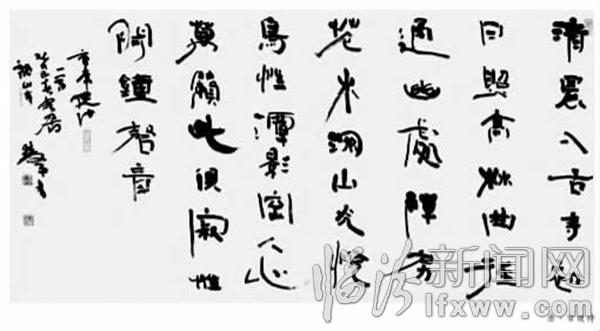 清晨入古寺初
日照高林曲徑
通幽處禪房
花木深山光悦
鳥性潭影空人心
萬籟此俱寂惟
聞鐘磬音
临汾新闻网
www.lfxww.com